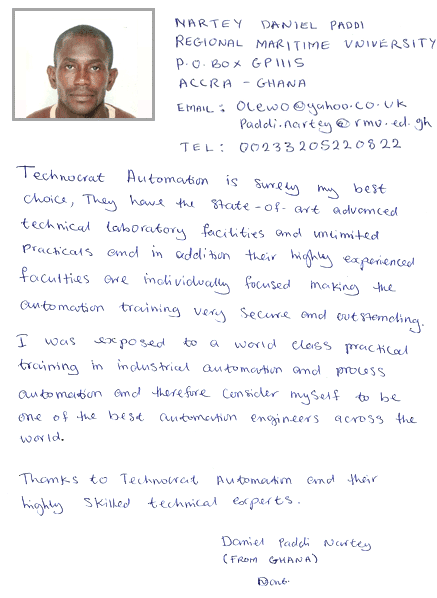 NARTEY DANIEL PADDI
REGIONAL MARITIME UNIVERSITY
P.O. BOX GP1115
ACCRA - GHANA
EMAIL : Olewo@yahoo.co.uk
Paddi.nartey@rmu.ed.gh
TEL : 00233205220822
Technocrat Automation is surely my best
choice, They have the state-of-art advanced
technical laboratory facilities and unlimited
Practicals and in addition their highly experienced
faculties are individually focused making the
automation training very secure and outstanding.
I was exposed to a world class practical
training in industrial automation and process
automation and therefore consider myself to be
one of the best automation engineers across the
world.
Thanks to Technocrat Automation and their
highly skilled technical experts.
Daniel Paddi Nartey
(FROM GHANA)